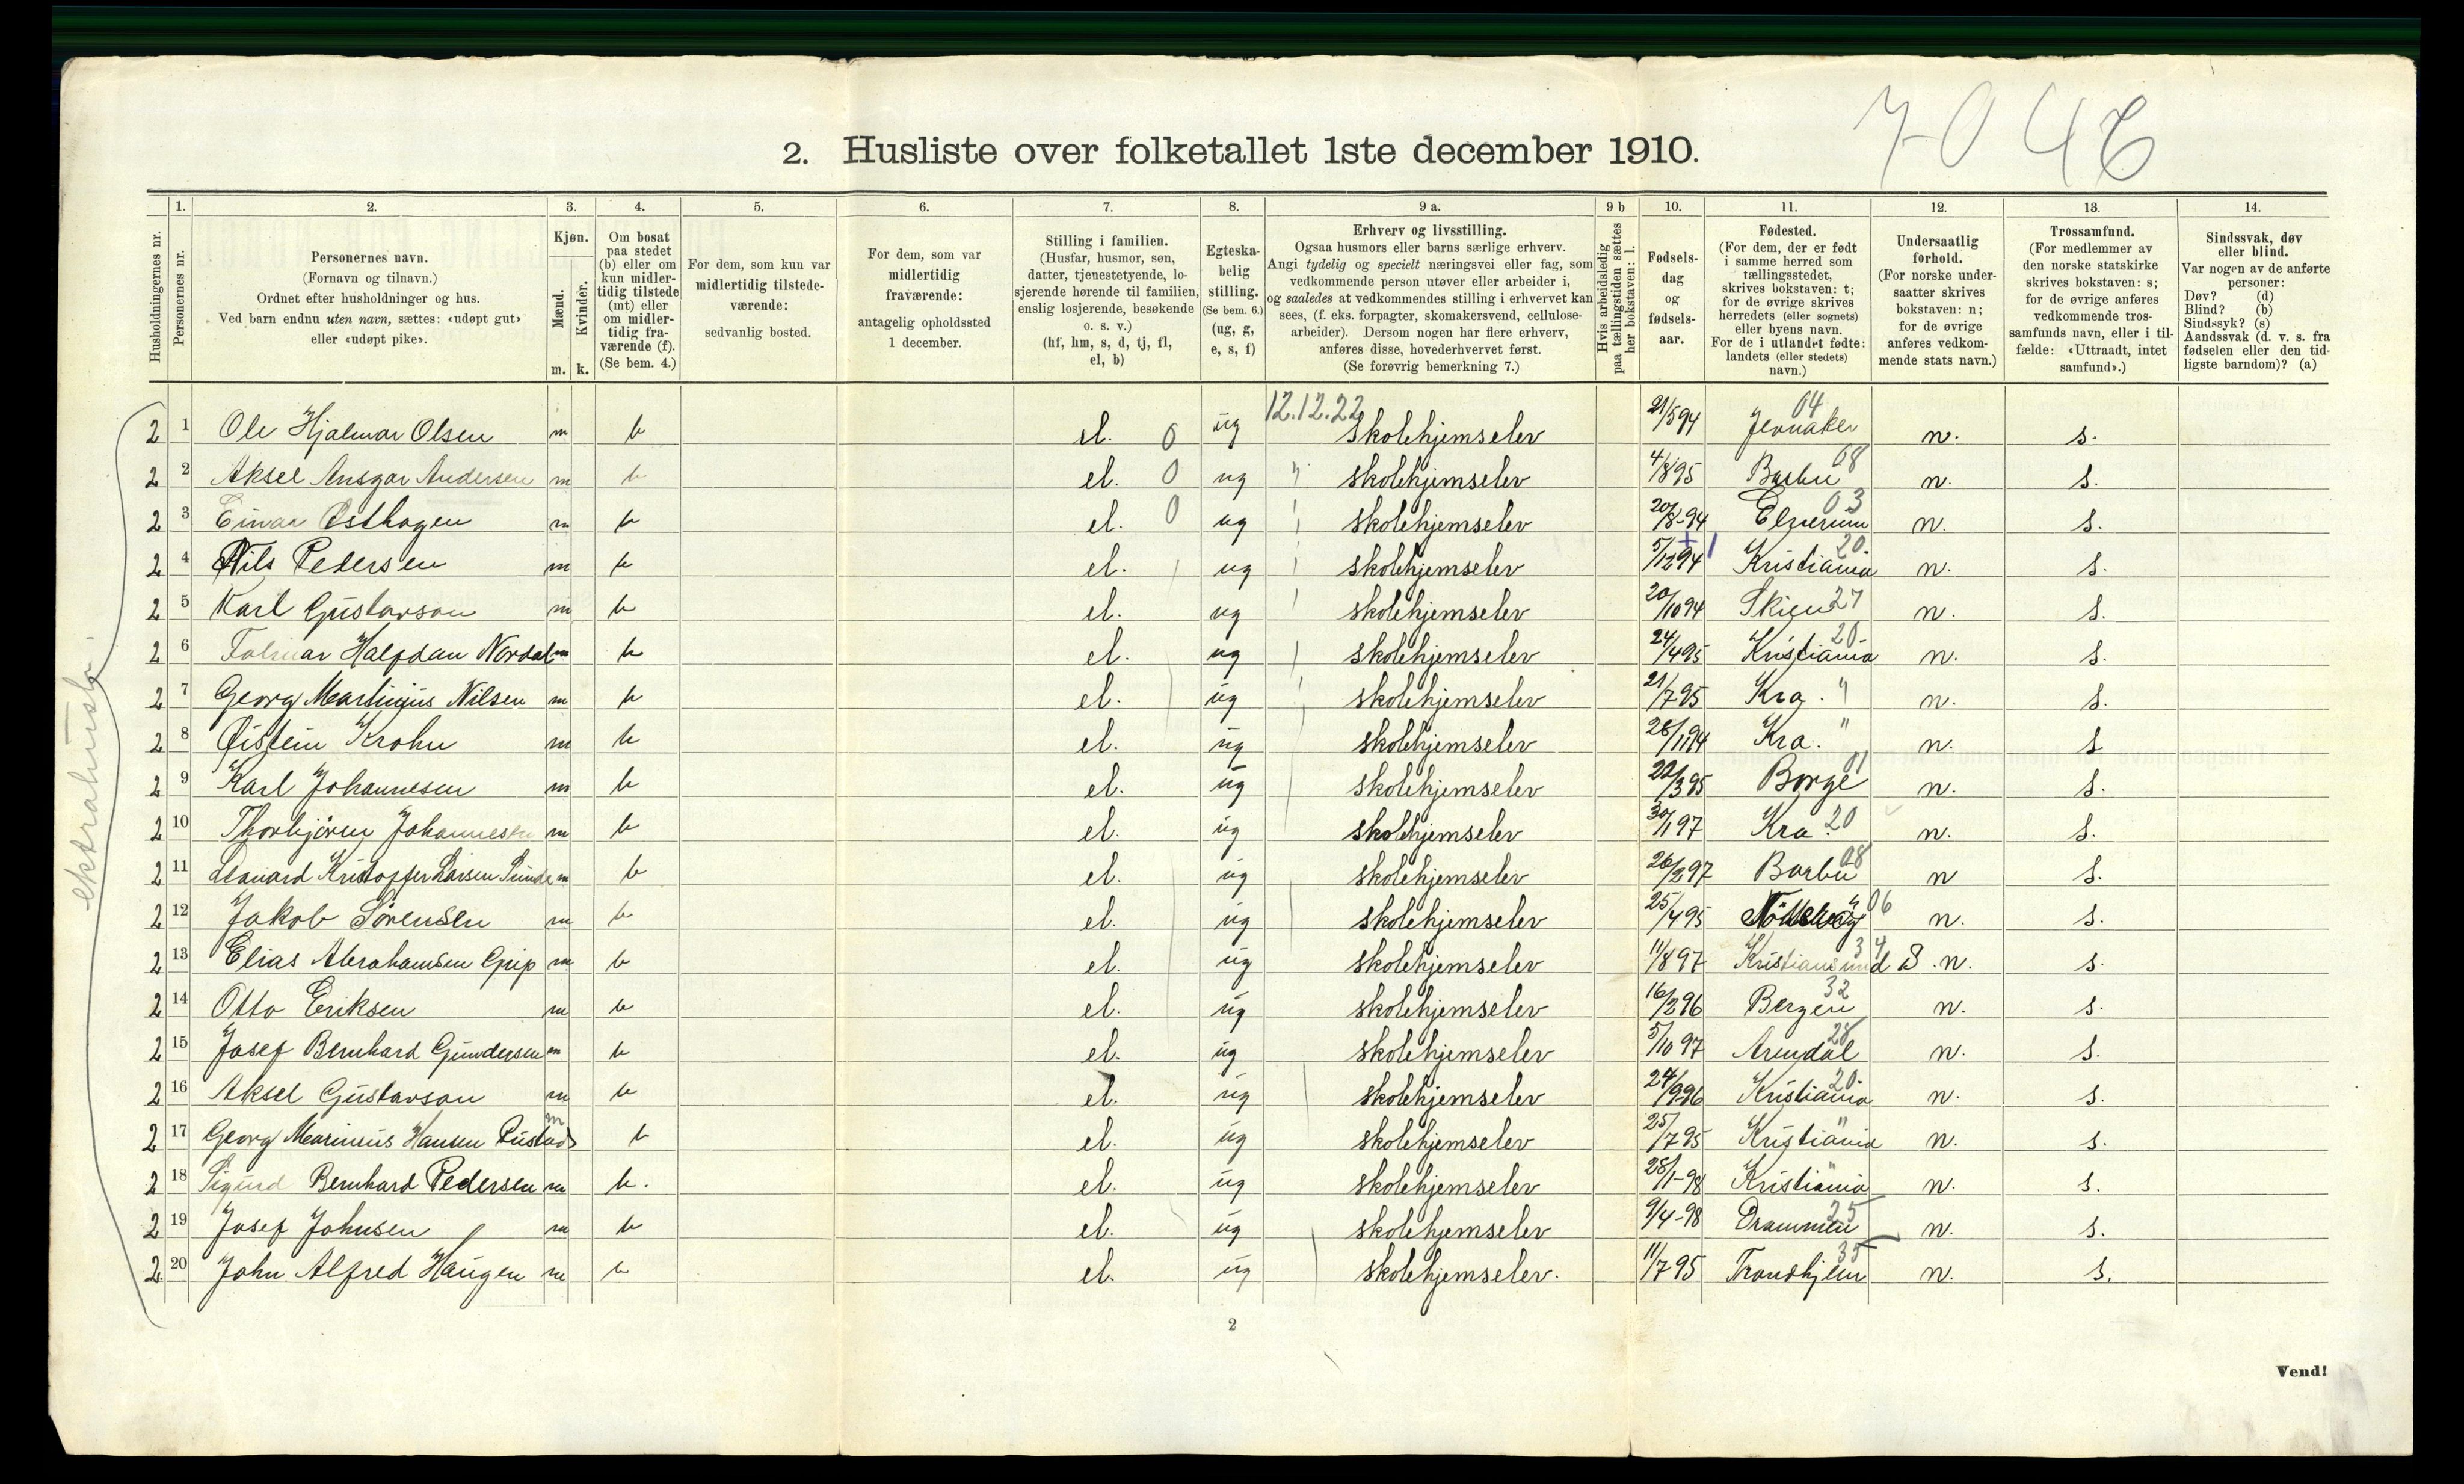 7046
2. Husliste over folketallet 1ste december 1910.
Husholdningernes nr.
1. Personernes nr.
2. Personernes navn.
(Fornavn og tilnavn.)
Ordnet efter husholdninger og hus.
Ved barn endnu uten navn, sættes: «udøpt gut»
eller «udøpt pike».
3. Kjøn.
Mænd. Kvinder.
m. k.
4. Om bosat
paa stedet
(b) eller om
kun midler-
tidig tilstede
(mt) eller
om midler-
tidig fra-
værende (f).
(Se bem. 4.)
5. For dem, som kun var
midlertidig tilstede-
værende:
sedvanlig bosted.
6. For dem, som var
midlertidig
fraværende:
antagelig opholdssted
1 december.
7. Stilling i familien.
(Husfar, husmor, søn,
datter, tjenestetyende, lo-
sjerende hørende til familien,
enslig losjerende, besøkende
o. s. v.)
(hf, hm, s, d, tj, fl,
el, b)
8. Egteska-
belig
stilling.
(Se bem. 6.)
(ug, g,
e, s, f)
9 a. Erhverv og livsstilling.
Ogsaa husmors eller barns særlige erhverv.
Angi tydelig og specielt næringsvei eller fag, som
vedkommende person utøver eller arbeider i,
og saaledes at vedkommendes stilling i erhvervet kan
sees, (f. eks. forpagter, skomakersvend, cellulose-
arbeider). Dersom nogen har flere erhverv,
anføres disse, hovederhvervet først.
(Se forøvrig bemerkning 7.)
9 b Hvis arbeidsledig
paa tællingstiden sættes
her bokstaven: l.
10. Fødsels-
dag
og
fødsels-
aar.
11. Fødested.
(For dem, der er født
i samme herred som
tællingsstedet,
skrives bokstaven: t;
for de øvrige skrives
herredets (eller sognets)
eller byens navn.
For de i utlandet fødte:
landets (eller stedets)
navn.)
12. Undersaatlig
forhold.
(For norske under-
saatter skrives
bokstaven: n;
for de øvrige
anføres vedkom-
mende stats navn.)
13. Trossamfund.
(For medlemmer av
den norske statskirke
skrives bokstaven: s;
for de øvrige anføres
vedkommende tros-
samfunds navn, eller i til-
fælde: «Uttraadt, intet
samfund».)
14. Sindssvak, døv
eller blind.
Var nogen av de anførte
personer:
Døv? (d)
Blind? (b)
Sindssyk? (s)
Aandssvak (d. v. s. fra
fødselen eller den tid-
ligste barndom)? (a)
12.12.22
2 1 Ole Hjalmar Olsen m b el. 0 ug skolehjemselev 21/5 94 Jevnaker 04 n. s.
2 2 Aksel Ansgar Andersen m b el. 0 ug " skolehjemselev 4/8 95 Barbu 08 n. s.
2 3 Einar Østhagen m b el. 0 ug skolehjemselev 20/8-94 Elverum 03 n. s.
2 4 Nils Pedersen m b el. ug skolehjemselev 5/12 94 Kristiania 20. n. s.
2 5 Karl Gustavson m b el. ug skolehjemselev 20/10 94 Skien 27 n. s.
2 6 Halfdan Nordal m b el. ug skolehjemselev 24/4 95 Kristiania 20. n. s.
2 7 Georg Martinius Nilsen m b el. ug skolehjemselev 21/7 95 Kra. " n. s.
2 8 Øistein Krohn m b el. ug skolehjemselev 26/11 94 Kra. " n. s
2 9 Karl Johannesen m b el. ug skolehjemselev 22/3 95 Borge 01 n. s.
2 10 Thorbjörn Johannesen m b el. ug skolehjemselev 30/1 97 Kra. 20 n. s.
2 11 Leonard Kristoffer Larsen m b el. ug skolehjemselev 26/2 97 Barbu 08 n s.
2 12 Jakob Sørensen m b el. ug skolehjemselev 25/4 95 Nötterøy 06 n. s.
2 13 Elias Abrahamsen Grip m b el. ug skolehjemselev 11/8 97 Kristiansund S 34 n. s.
2 14 Otto Eriksen m b el. ug skolehjemselev 16/2 96 Bergen 32 n. s.
2 15 Josef Bernhard Gundersen m b el. ug skolehjemselev 5/10 97 Arendal 28 n. s.
2 16 Aksel Gustavson m b el. ug skolehjemselev 24/9 96 Kristiania 20. n. s.
2 17 Georg Marinius Hansen Rustad m b el. ug skolehjemselev 25/7 95 Kristiania " n. s.
2 18 Sigurd Bernhard Pedersen m b. el. ug skolehjemselev 28/1-98 Kristiania " n. s.
2 19 Josef Johnsen m b el. ug skolehjemselev 9/4-98 Drammen 25 n. s.
2 20 John Alfred Haugen m b el. ug skolehjemselev. 11/7 95 Trondhjem 35 n. s.
2
Vend!